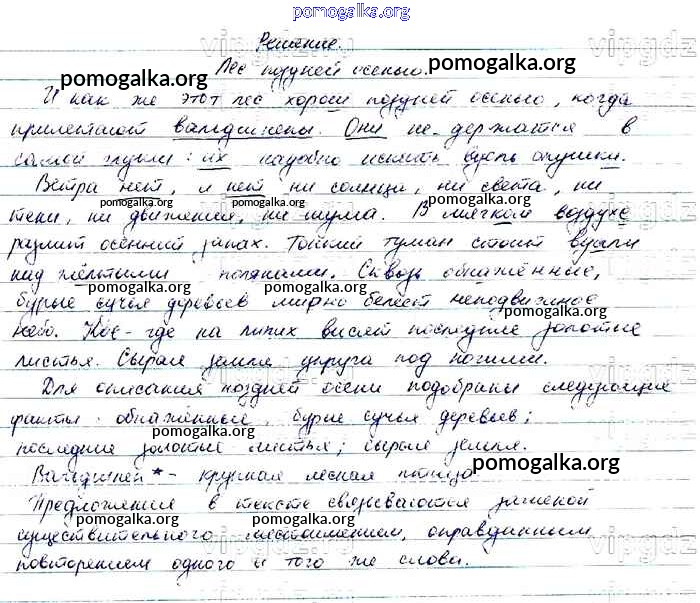 pomogalka.org
Решение.
Лес поздней осенью.
И как же этот лес хорош поздней осенью, когда
прилетают вальдшнепы. Они не держатся в
самой глуши: их надобно искать вдоль опушки.
Ветра нет, и нет ни солнца, ни света, ни
тени, ни движения, ни шума. В мягком воздухе
разлит осенний запах. Тонкий туман стоит вдали
над жёлтыми полянами. Сквозь обнажённые,
бурые сучья деревьев мирно белеет неподвижное
небо. Кое-где на липах висят последние золотые
листья. Сырая земля упруга под ногами.
Для описания поздней осени подобраны следующие
факты: обнажённые, бурые сучья деревьев;
последние золотые листья; сырая земля.
Вальдшнеп* - крупная лесная птица
Предложения в тексте связываются заменой
существительного местоимением, оправданным
повторением одного и того же слова.